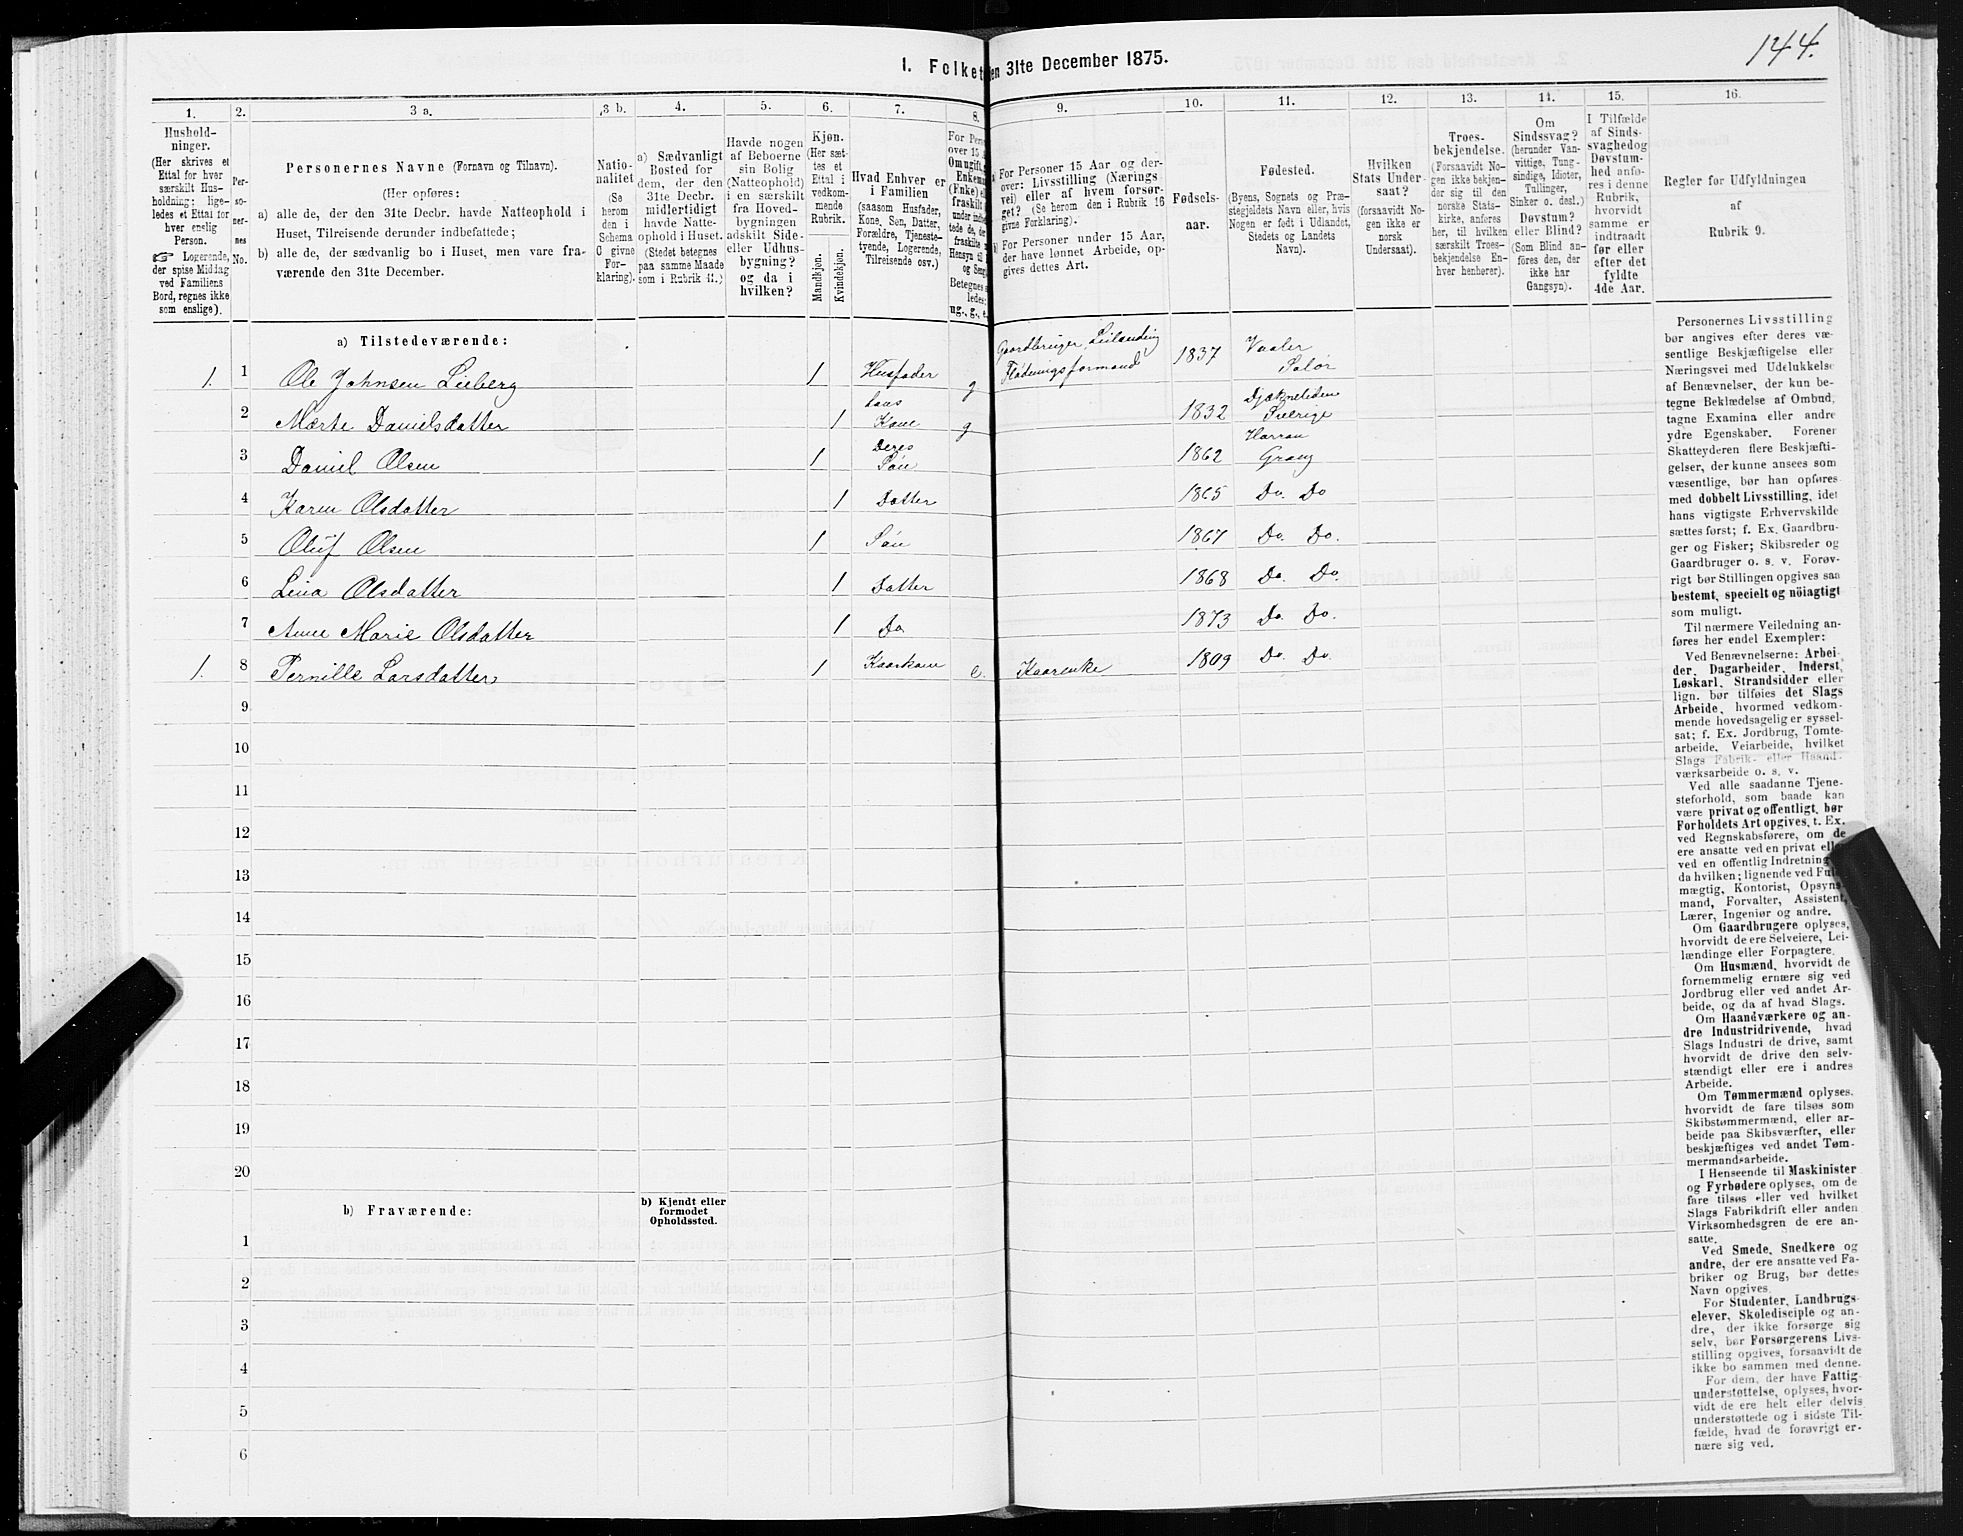 144.
1. Folket
en 31te December 1875.
1.
Hushold-
ninger.
(Her skrives et
Ettal for hver
særskilt Hus-
holdning; lige-
ledes et Ettal for
hver enslig
Person.
☞ Logerende,
der spise Middag
ved Familiens
Bord, regnes ikke
som enslige).
2.
Per-
so-
ner-
nes
No.
3 a.
Personernes Navne (Fornavn og Tilnavn).
(Her opføres:
a) alle de, der den 31te Decbr. havde Natteophold i
Huset, Tilreisende derunder indbefattede;
b) alle de, der sædvanlig bo i Huset, men vare fra-
værende den 31te December.
3 b.
Natio-
nalitet
(Se
herom
den i
Schema
0 givne
For-
klaring).
4.
a) Sædvanligt
Bosted for
dem, der den
31te Decbr.
midlertidigt
havde Natte-
ophold i Huset.
(Stedet betegnes
paa samme Maade
som i Rubrik 11.)
5.
Havde nogen
af Beboerne
sin Bolig
(Natteophold)
i en særskilt
fra Hoved-
bygningen
adskilt Side-
eller Udhus-
bygning?
og da i
hvilken?
6.
Kjøn.
(Her sæt-
tes et
Ettal i
vedkom-
mende
Rubrik.
Mandkjøn.
Kvindekjøn.
7.
Hvad Enhver er
i Familien
(saasom Husfader,
Kone, Søn, Datter,
Forældre, Tjeneste-
tyende, Logerende,
Tilreisende osv.)
8.
For Pers
over 15
Omugift,
Enkem
(Enke) el
fraskilt
under indbe
tede de, de
fraskilte
Hensyn til
og Seng
Betegnes s
ledes:
ug., g., e.
9.
a) For Personer 15 Aar og der-
over: Livsstilling (Nærings-
vei) eller af hvem forsør-
get? (Se herom den i Rubrik 16
givne Forklaring).
b) For Personer under 15 Aar,
der have lønnet Arbeide, op-
gives dettes Art.
10.
Fødsels-
aar.
11.
Fødested.
(Byens, Sognets og Præ-
stegjeldets Navn eller, hvis
Nogen er født i Udlandet,
Stedets og Landets
Navn).
12.
Hvilken
Stats Under-
saat?
(forsaavidt No-
gen ikke er
norsk
Undersaat).
13.
Troes-
bekjendelse.
(Forsaavidt No-
gen ikke bekjen-
der sig til den
norske Stats-
kirke, anføres
her, til hvilken
særskilt Troes-
bekjendelse En-
hver henhører).
14.
Om
Sindssvag?
(herunder Van-
vittige, Tung-
sindige, Idioter,
Tullinger,
Sinker o. desl.)
Døvstum?
eller Blind?
(Som Blind an-
føres den, der
ikke har
Gangsyn).
15.
I Tilfælde
af Sinds-
svaghed og
Døvstum-
hed anfø-
res i denne
Rubrik,
hvorvidt
samme er
indtraadt
før eller
efter det
fyldte
4de Aar.
16.
Regler for Udfyldningen
af
Rubrik 9.
a) Tilstedeværende:
1. 1 Ole Johnsen Lieberg 1 Husfader g Gaardbruger, Leilænding Flødningsformand 1837 Vaaler Solør
2 Marte Danielsdatter 1 hans Kone g 1832 Sverige
3 Daniel Olsen 1 Deres Søn 1862 Harran Grong
4 Karen Olsdatter 1 Datter 1865 Do. Do
5 Oluf Olsen 1 Søn 1867 Do. Do.
6 Lina Olsdatter 1 Datter 1868 Do. Do.
7 Anne Marie Olsdatter 1 Do. 1873 Do. Do.
1. 8 Pernille Larsdatter 1 Kaarkone e. Kaarenke 1809 Do. Do.
9
10
11
12
13
14
15
16
17
18
19
20
b) Fraværende:
b) Kjendt eller
formodet
Opholdssted.
1
2
3
4
5
6
Personernes Livsstilling
bør angives efter deres væ-
sentlige Beskjæftigelse eller
Næringsvei med Udelukkelse
af Benævnelser, der kun be-
tegne Beklædelse af Ombud,
tagne Examina eller andre
ydre Egenskaber. Forener
Skatteyderen flere Beskjæfti-
gelser, der kunne ansees som
væsentlige, bør han opføres
med dobbelt Livsstilling, idet
hans vigtigste Erhvervskilde
sættes først; f. Ex. Gaardbru-
ger og Fisker; Skibsreder og
Gaardbruger o. s. v. Forøv-
rigt bør Stillingen opgives saa
bestemt, specielt og nöiagtigt
som muligt.
Til nærmere Veiledning an-
føres her endel Exempler:
Ved Benævnelserne: Arbei-
der, Dagarbeider, Inderst,
Løskarl, Strandsidder eller
lign. bør tilføies det Slags
Arbeide, hvormed vedkom-
mende hovedsagelig er syssel-
sat; f. Ex. Jordbrug, Tomte-
arbeide, Veiarbeide, hvilket
Slags Fabrik- eller Haand-
værksarbeide o. s. v.
Ved alle saadanne Tjene-
steforhold, som baade kan
være privat og offentligt, bør
Forholdets Art opgives, t. Ex.
ved Regnskabsførere, om de
ere ansatte ved en privat elle
ved en offentlig Indretning
da hvilken; lignende ved Ful
mægtig, Kontorist, Opsyns-
mand, Forvalter, Assistent,
Lærer, Ingeniør og andre.
Om Gaardbrugere oplyses,
hvorvidt de ere Selveiere, Lei-
lændinge eller Forpagtere.
Om Husmænd, hvorvidt de
fornemmelig ernære sig ved
Jordbrug eller ved andet Ar-
beide, og da af hvad Slags.
Om Haandværkere og an-
dre Industridrivende, hvad
Slags Industri de drive, samt
hvorvidt de drive den selv-
stændigt eller ere i andres
Arbeide.
Om Tømmermænd oplyses,
hvorvidt de fare tilsøs som
Skibstømmermænd, eller ar-
beide paa Skibsværfter, eller
beskjæftiges ved andet Tøm-
mermandsarbeide.
I Henseende til Maskinister
og Fyrbødere oplyses, om de
fare tilsøs eller ved hvilket
Slags Fabrikdrift eller anden
Virksomhedsgren de ere an-
satte.
Ved Smede, Snedkere og
andre, der ere ansatte ved Fa-
briker og Brug, bør dettes
Navn opgives.
For Studenter, Landbrugs-
elever, Skoledisciple og an-
dre, der ikke forsørge sig
selv, bør Forsørgerens Livs-
stilling opgives, forsaavidt de
ikke bo sammen med denne.
For dem, der have Fattig-
understøttelse, oplyses, hvor-
vidt de ere helt eller delvis
understøttede og i sidste Til-
fælde, hvad de forøvrigt er-
nære sig ved.